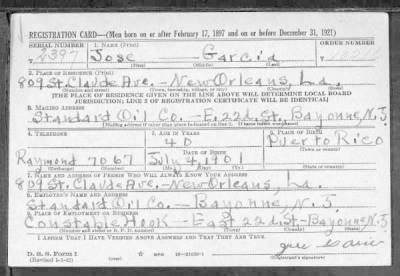 REGISTRATION CARD—(Men born on or after February 17, 1897 and on or before December 31, 1921)
SERIAL NUMBER 1. NAME (Print) ORDER NUMBER
Jose Garcia
(First) (Middle) (Last)
2. PLACE OF RESIDENCE (Print)
809 St. Claude Ave. — New Orleans, La.
(Number and street) (Town, township, village, or city) (County) (State)
[THE PLACE OF RESIDENCE GIVEN ON THE LINE ABOVE WILL DETERMINE LOCAL BOARD
JURISDICTION; LINE 2 OF REGISTRATION CERTIFICATE WILL BE IDENTICAL]
3. MAILING ADDRESS
Standard Oil Co. — E. 22d. St., Bayonne, N.J.
[Mailing address if other than place indicated on line 2. If same insert word same]
4. TELEPHONE 5. AGE IN YEARS 6. PLACE OF BIRTH
40 Puerto Rico
DATE OF BIRTH (Town or county)
Raymond 7067 July 4, 1901
(Exchange) (Number) (Mo.) (Day) (Yr.) (State or country)
7. NAME AND ADDRESS OF PERSON WHO WILL ALWAYS KNOW YOUR ADDRESS
809 St. Claude Ave. — New Orleans, La.
8. EMPLOYER'S NAME AND ADDRESS
Standard Oil Co. — Bayonne, N. J.
9. PLACE OF EMPLOYMENT OR BUSINESS
Constable Hook — East 22d. St. — Bayonne, N.J.
(Number and street or R. F. D. number) (Town) (County) (State)
I AFFIRM THAT I HAVE VERIFIED ABOVE ANSWERS AND THAT THEY ARE TRUE.
D. S. S. Form 1
(Revised 1-1-42) (over)